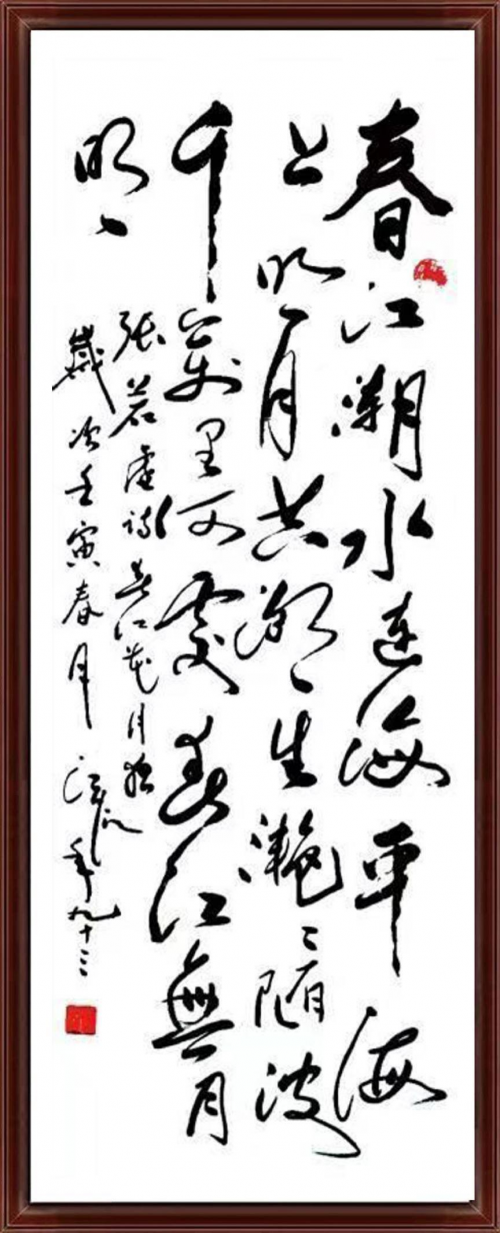 春江潮水連海平海
上明月共潮生灧〻随波
千萬里何處春江無月
明
張若虛詩春江花月夜
歲次壬寅春月 年九十三